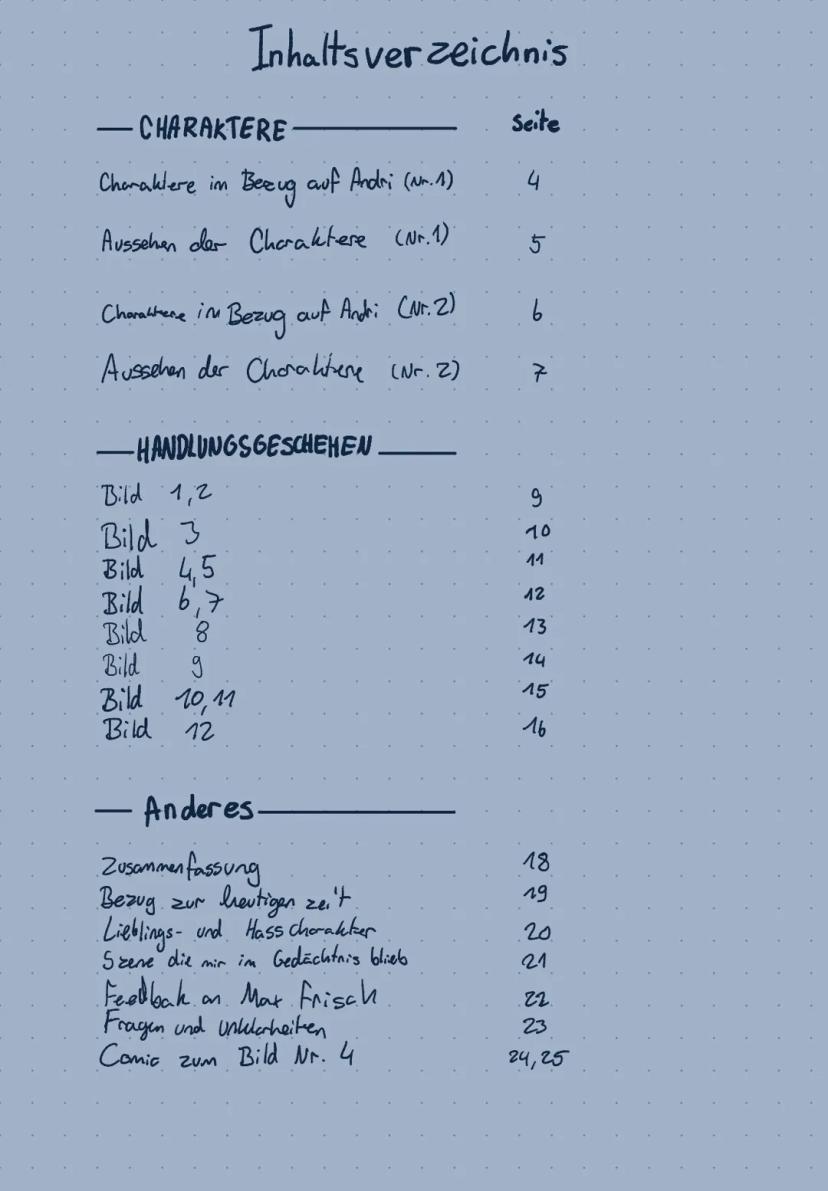 Inhaltsverzeichnis
CHARAKTERE Seite
Charaktere im Bezug auf Andri (Nr.1) 4
Aussehen der Charaktere (Nr.1) 5
Charaktere im Bezug auf Andri (Nr.2) 6
Aussehen der Charaktere (Nr.2) 7
HANDLUNGSGESCHEHEN
Bild 1,2 9
Bild 3 10
Bild 4,5 11
Bild 6,7 12
Bild 8 13
Bild 9 14
Bild 10,11 15
Bild 12 16
Anderes
Zusammenfassung 18
Bezug zur heutigen zeit 19
Lieblings- und Hass charakter 20
Szene die mir im Gedächtnis blieb 21
Feedbak an Max Frisch 22
Fragen und unklarheiten 23
Comic zum Bild Nr. 4 24,25